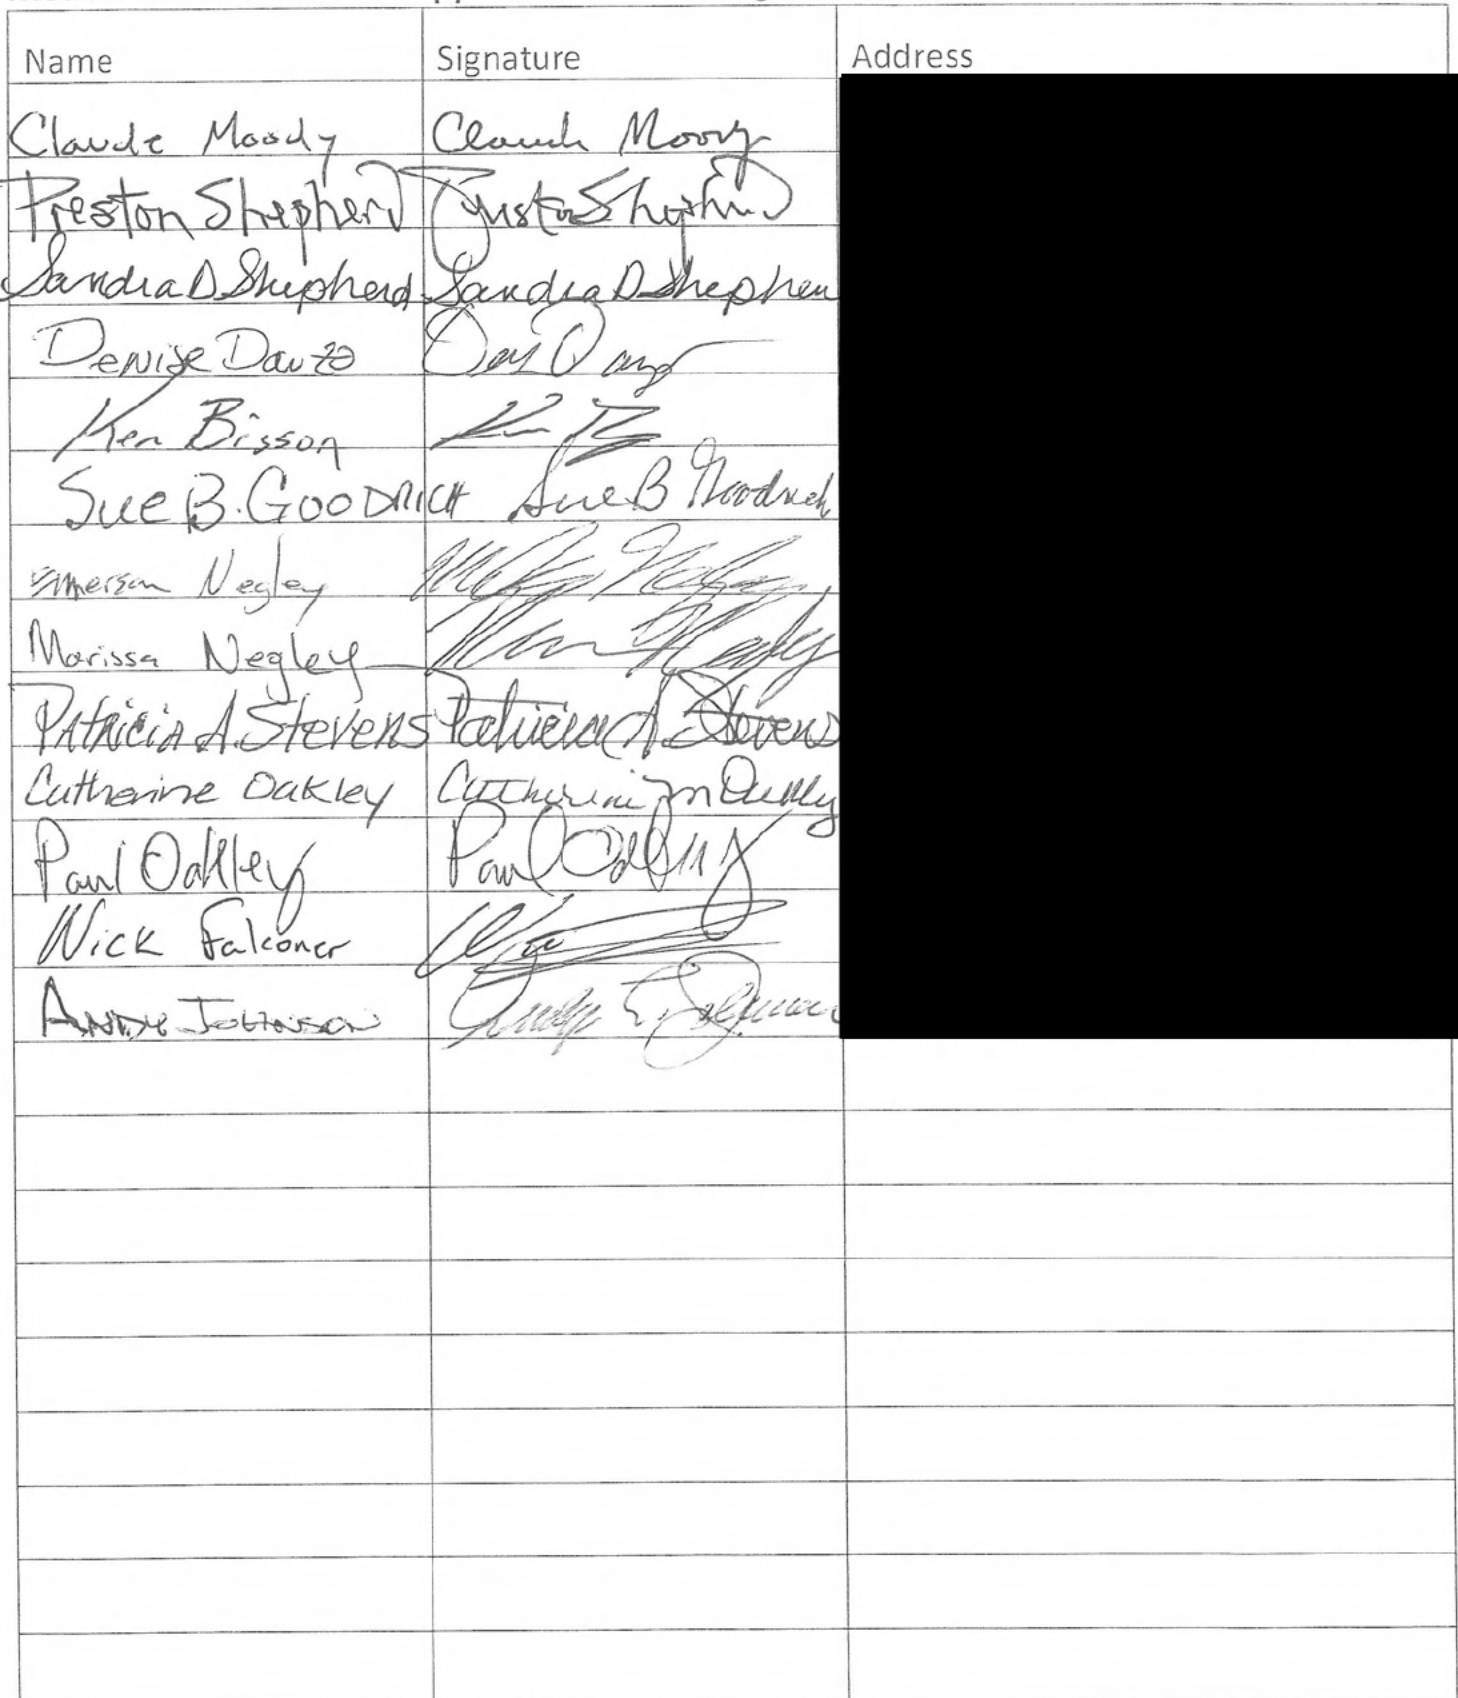 Name Signature Address
Claude Moody Claude Moody
Preston Shepherd Preston Shepherd
Sandra D Shepherd Sandra D Shepher
Denise
Ken Bisson
Sue B. GOODRICH Sue B Goodrich
Emerson Negley
Marissa Negley
Patricia A. Stevens Patricia A. Stevens
Catherine Oakley Catherine M Oakley
Paul Oakley Paul Oakley
Nick Falconer
ANDY JOHNSON